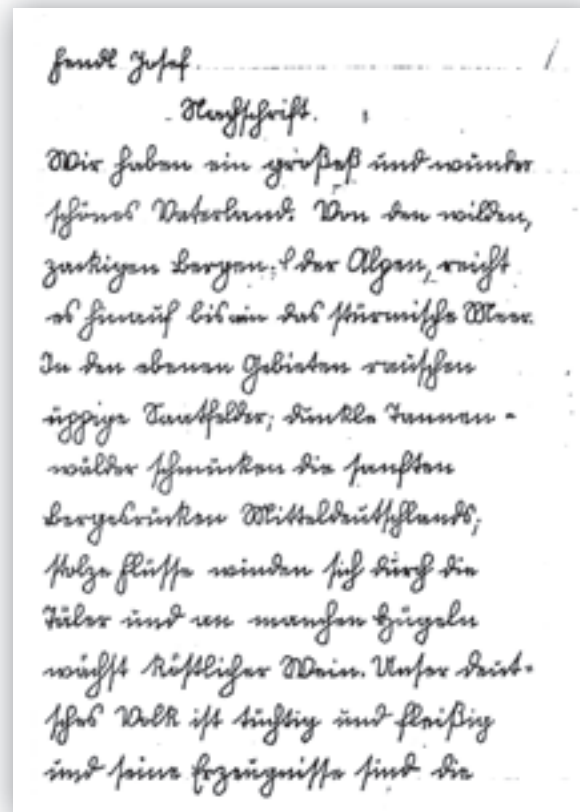 Hendl Josef
Nachschrift.
Wir haben ein großeß und wunder
schönes Vaterland. Von den wilden,
zackigen Bergen, der Alpen, reicht
es hinauf bis an das stürmische Meer.
In den ebenen Gebieten rauschen
üppige Saatfelder; dunkle Tannen-
wälder schmücken die sanften
Bergesrücken Mitteldeutschlands;
stolze Flüsse winden sich durch die
Täler und an manchen Hügeln
wächst köstlicher Wein. Unser deut-
sches Volk ist tüchtig und fleißig
und seine Erzeugnisse sind die